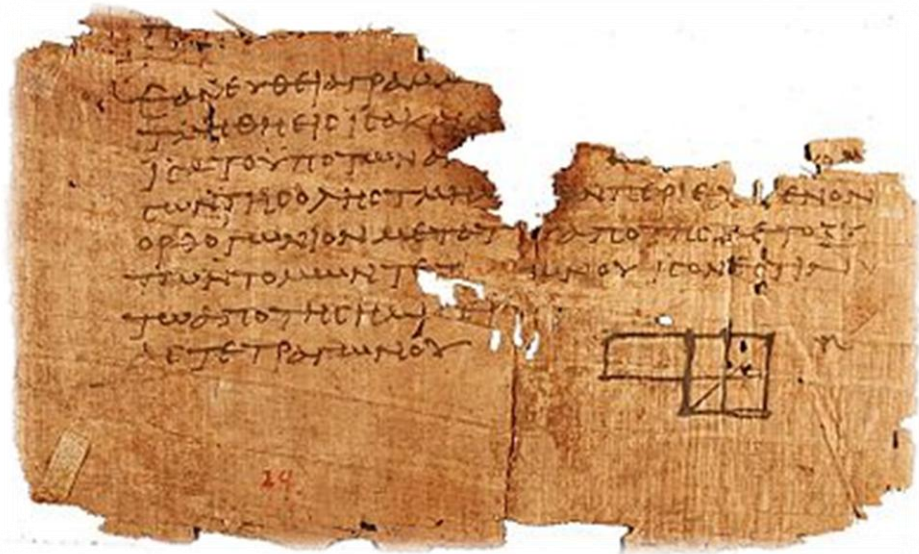 ΕΑΝΕΥΘΕΙΑΓΡΑΜΜ
ΤΜΗΘΗΕΙϹΙϹΑΚΑΙΑ
ΙϹΑΤΟΥΠΟΤΩΝΑ
ϹΩΝΤΗϹΟΛΗϹΤΜΗΜ ΝΠΕΡΙΕΧ ΜΕΝΟΝ
ΟΡΘΟΓΩΝΙΟΝΜΕΤΟΤ ΑΠΟΤΗϹΜΕΤΟΞΥ
ΤΩΝΤΟΜΩΝΤΕΤ ΩΝΟΥΙϹΟΝΕϹΤΙΝ
ΤΩΑΠΟΤΗϹΗΜΙ
ΑϹΤΕΤΡΑΓΩΝΟΥ
24